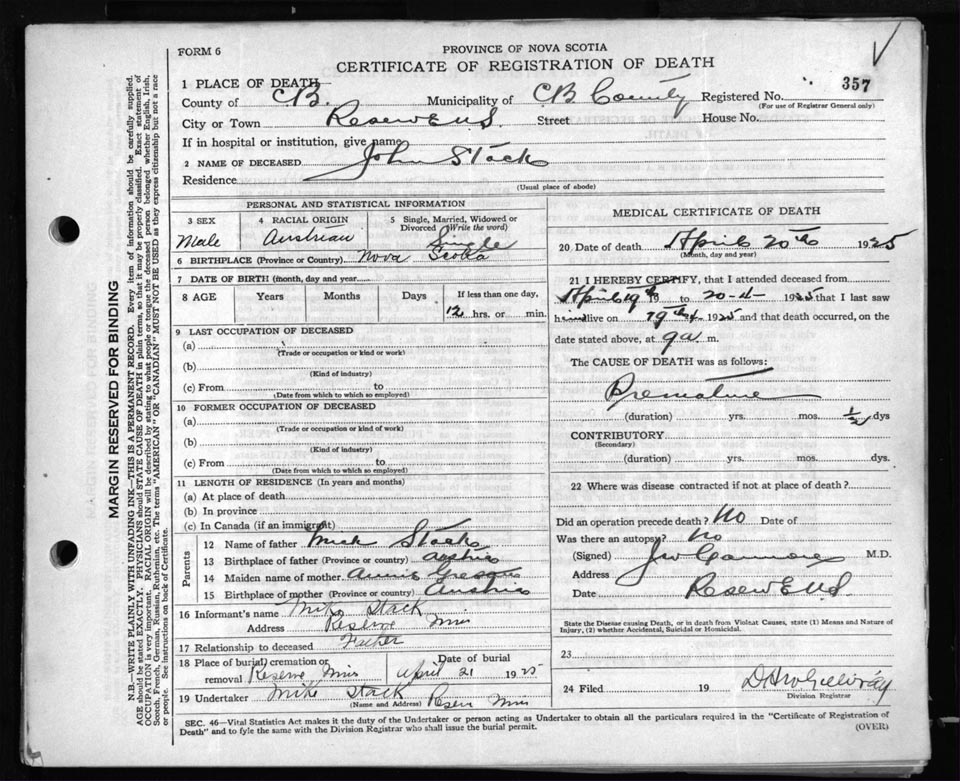 FORM 6
PROVINCE OF NOVA SCOTIA
CERTIFICATE OF REGISTRATION OF DEATH
1 PLACE OF DEATH
County of C.B. Municipality of CB County Registered No. 357
(For use of Registrar General only)
City or Town Street House No.
If in hospital or institution, give name
2 NAME OF DECEASED John Stack
Residence
(Usual place of abode)
PERSONAL AND STATISTICAL INFORMATION
3 SEX
Male
4 RACIAL ORIGIN
Austrian
5 Single, Married, Widowed or Divorced (Write the word)
Single
6 BIRTHPLACE (Province or Country) Nova Scotia
7 DATE OF BIRTH (month, day and year)
8 AGE Years Months Days If less than one day,
12 hrs. or min.
9 LAST OCCUPATION OF DECEASED
(a)
(Trade or occupation or kind or work)
(b)
(Kind of industry)
(c) From to
(Date from which to which so employed)
10 FORMER OCCUPATION OF DECEASED
(a)
(Trade or occupation or kind of work)
(b)
(Kind of industry)
(c) From to
(Date from which to which so employed)
11 LENGTH OF RESIDENCE (In years and months)
(a) At place of death
(b) In province
(c) In Canada (if an immigrant)
Parents
12 Name of father Mick Stack
13 Birthplace of father (Province or country)
14 Maiden name of mother Annie
15 Birthplace of mother (Province or country) Austria
16 Informant's name Mike Stack
Address Reserve Mines
17 Relationship to deceased Father
18 Place of burial, cremation or removal Reserve Mines
Date of burial
April 21 1925
19 Undertaker Mike Stack
(Name and Address) Reserve Mines
MEDICAL CERTIFICATE OF DEATH
20 Date of death April 20th 1925
(Month, day and year)
21 I HEREBY CERTIFY, that I attended deceased from
April 19th 19 to 20-4- 1925 that I last saw
him alive on 19th 4- 1925 and that death occurred, on the
date stated above, at 9 a m.
The CAUSE OF DEATH was as follows:
Premature
(duration) yrs. mos. ½ dys
CONTRIBUTORY
(Secondary)
(duration) yrs. mos. dys.
22 Where was disease contracted if not at place of death?
Did an operation precede death? No Date of
Was there an autopsy? No
(Signed) M.D.
Address
Date
State the Disease causing Death, or in death from Violent Causes, state (1) Means and Nature of
Injury, (2) whether Accidental, Suicidal or Homicidal.
23
24 Filed 19
Division Registrar
SEC. 46—Vital Statistics Act makes it the duty of the Undertaker or person acting as Undertaker to obtain all the particulars required in the "Certificate of Registration of
Death" and to fyle the same with the Division Registrar who shall issue the burial permit.
(OVER)
MARGIN RESERVED FOR BINDING
N.B.—WRITE PLAINLY WITH UNFADING INK—THIS IS A PERMANENT RECORD. Every item of information should be carefully supplied.
AGE should be stated EXACTLY. PHYSICIANS should STATE CAUSE OF DEATH in plain terms, so that it may be properly classified. Exact statement of
OCCUPATION is very important. RACIAL ORIGIN will be described by stating to what people or tongue the deceased person belonged whether English, Irish,
Scotch, French, German, Russian, Ruthenian, etc. The terms "AMERICAN" OR "CANADIAN" MUST NOT BE USED as they express citizenship but not a race
or people. See instructions on back of Certificate.